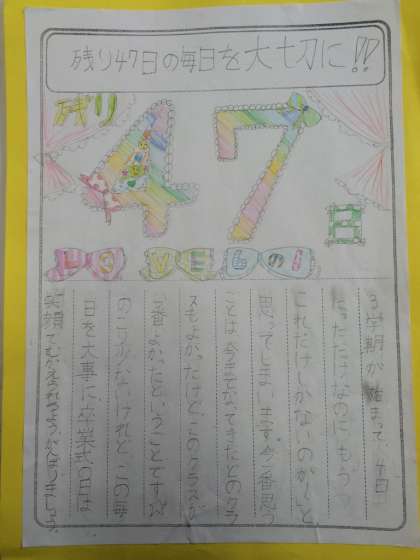 残り47日の毎日を大切に!!
残り
47
日
LOVE 6の1
3学期が始まって、4日
たっただけなのに、もう
これだけしかないのか〜と
思ってしまいます。今一番思う
ことは、今までやってきたどのクラ
スもよかったけど、このクラスが
一番よかったということです☆
のこり少ないけれど、この毎
日を大事に、卒業式の日は
笑顔でむかえられるよう